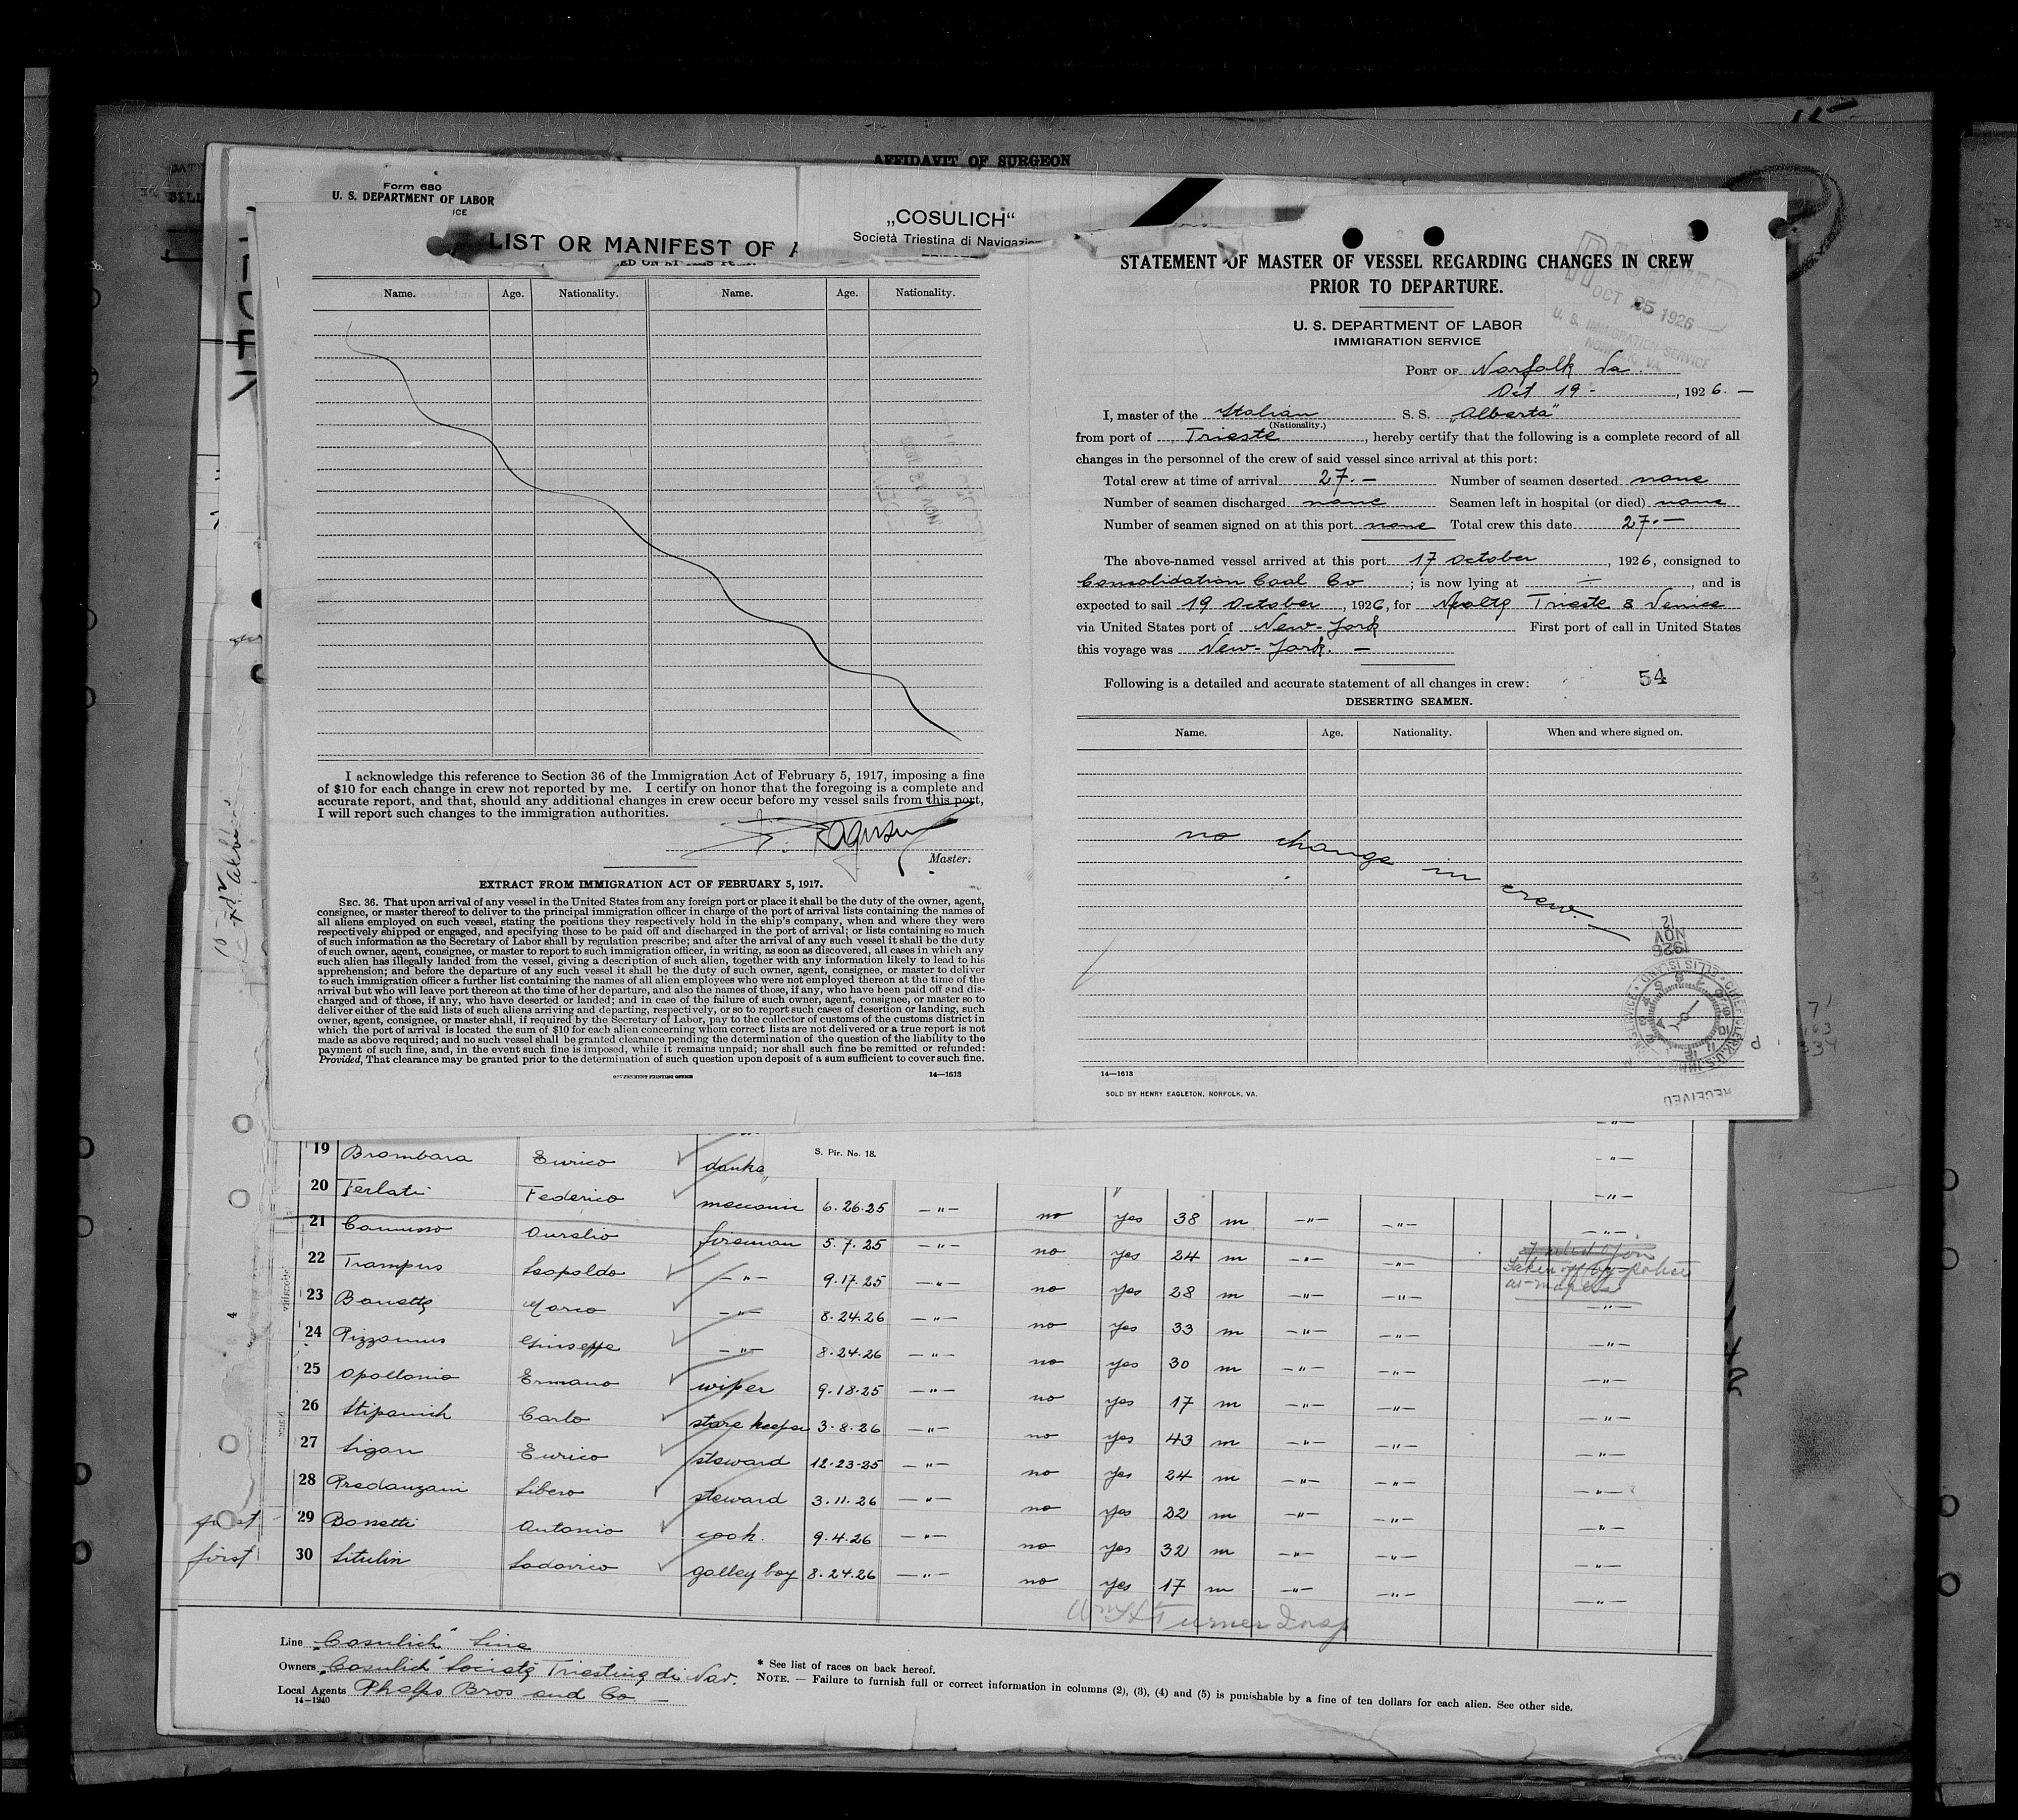 AFFIDAVIT OF SURGEON
Form 680
U. S. DEPARTMENT OF LABOR
ICE
LIST OR MANIFEST OF A
„COSULICH“
Società Triestina di Navigazion
Name. Age. Nationality. Name. Age. Nationality.
I acknowledge this reference to Section 36 of the Immigration Act of February 5, 1917, imposing a fine
of $10 for each change in crew not reported by me. I certify on honor that the foregoing is a complete and
accurate report, and that, should any additional changes in crew occur before my vessel sails from this port,
I will report such changes to the immigration authorities.
Master.
EXTRACT FROM IMMIGRATION ACT OF FEBRUARY 5, 1917.
SEC. 36. That upon arrival of any vessel in the United States from any foreign port or place it shall be the duty of the owner, agent,
consignee, or master thereof to deliver to the principal immigration officer in charge of the port of arrival lists containing the names of
all aliens employed on such vessel, stating the positions they respectively hold in the ship's company, when and where they were
respectively shipped or engaged, and specifying those to be paid off and discharged in the port of arrival; or lists containing so much
of such information as the Secretary of Labor shall by regulation prescribe; and after the arrival of any such vessel it shall be the duty
of such owner, agent, consignee, or master to report to such immigration officer, in writing, as soon as discovered, all cases in which any
such alien has illegally landed from the vessel, giving a description of such alien, together with any information likely to lead to his
apprehension; and before the departure of any such vessel it shall be the duty of such owner, agent, consignee, or master to deliver
to such immigration officer a further list containing the names of all alien employees who were not employed thereon at the time of the
arrival but who will leave port thereon at the time of her departure, and also the names of those, if any, who have been paid off and dis-
charged and of those, if any, who have deserted or landed; and in case of the failure of such owner, agent, consignee, or master so to
deliver either of the said lists of such aliens arriving and departing, respectively, or so to report such cases of desertion or landing, such
owner, agent, consignee, or master shall, if required by the Secretary of Labor, pay to the collector of customs of the customs district in
which the port of arrival is located the sum of $10 for each alien concerning whom correct lists are not delivered or a true report is not
made as above required; and no such vessel shall be granted clearance pending the determination of the question of the liability to the
payment of such fine, and, in the event such fine is imposed, while it remains unpaid; nor shall such fine be remitted or refunded:
Provided, That clearance may be granted prior to the determination of such question upon deposit of a sum sufficient to cover such fine.
GOVERNMENT PRINTING OFFICE 14—1613
STATEMENT OF MASTER OF VESSEL REGARDING CHANGES IN CREW
PRIOR TO DEPARTURE.
OCT 25 1926
U. S. IMMIGRATION SERVICE
NORFOLK, VA.
U. S. DEPARTMENT OF LABOR
IMMIGRATION SERVICE
PORT OF Norfolk Va.
Oct 19 - , 1926. —
I, master of the Italian S. S. „Alberta“
(Nationality.)
from port of Trieste, hereby certify that the following is a complete record of all
changes in the personnel of the crew of said vessel since arrival at this port:
Total crew at time of arrival 27. — Number of seamen deserted none
Number of seamen discharged none Seamen left in hospital (or died) none
Number of seamen signed on at this port none Total crew this date 27. —
The above-named vessel arrived at this port 17 October, 1926, consigned to
Consolidation Coal Co ; is now lying at — , and is
expected to sail 19 October, 1926, for Trieste & Venice
via United States port of New-York First port of call in United States
this voyage was New-York. —
Following is a detailed and accurate statement of all changes in crew: 54
DESERTING SEAMEN.
Name. Age. Nationality. When and where signed on.
no change in crew. —
12
NOV
1926
RECEIVED
14—1613
SOLD BY HENRY EAGLETON, NORFOLK, VA.
S. Pir. No. 18.
19 Brombara Enrico —"—
20 Ferlati Federico 6.26.25 —"— no yes 38 m —"— —"— —"—
21 Camusso Aurelio fireman 5.7.25 —"— no yes 24 m —"— —"—
22 Trampus Leopoldo —"— 9.17.25 —"— no yes 28 m —"— —"—
23 Mario —"— 8.24.26 —"— no yes 33 m —"— —"— —"—
24 Pizzamus Giuseppe —"— 8.24.26 —"— no yes 30 m —"— —"— —"—
25 Apollonio Ermano wiper 9.18.25 —"— no yes 17 m —"— —"— —"—
26 Stipanich Carlo store keeper 3.8.26 —"— no yes 43 m —"— —"— —"—
27 Sigan Enrico steward 12-23-25 —"— no yes 24 m —"— —"— —"—
28 Predanzani Libero steward 3.11.26 —"— no yes 22 m —"— —"— —"—
first 29 Bonetti Antonio cook. 9.4.26 —"— no yes 32 m —"— —"— —"—
first 30 Situlin Lodovico galley boy 8.24.26 —"— no yes 17 m —"— —"— —"—
Wm H Turner Insp
Line „Cosulich“ Line
Owners „Cosulich“ Società Triestina di Nav.
Local Agents Phelps Bros and Co —
14—1240
* See list of races on back hereof.
NOTE. — Failure to furnish full or correct information in columns (2), (3), (4) and (5) is punishable by a fine of ten dollars for each alien. See other side.